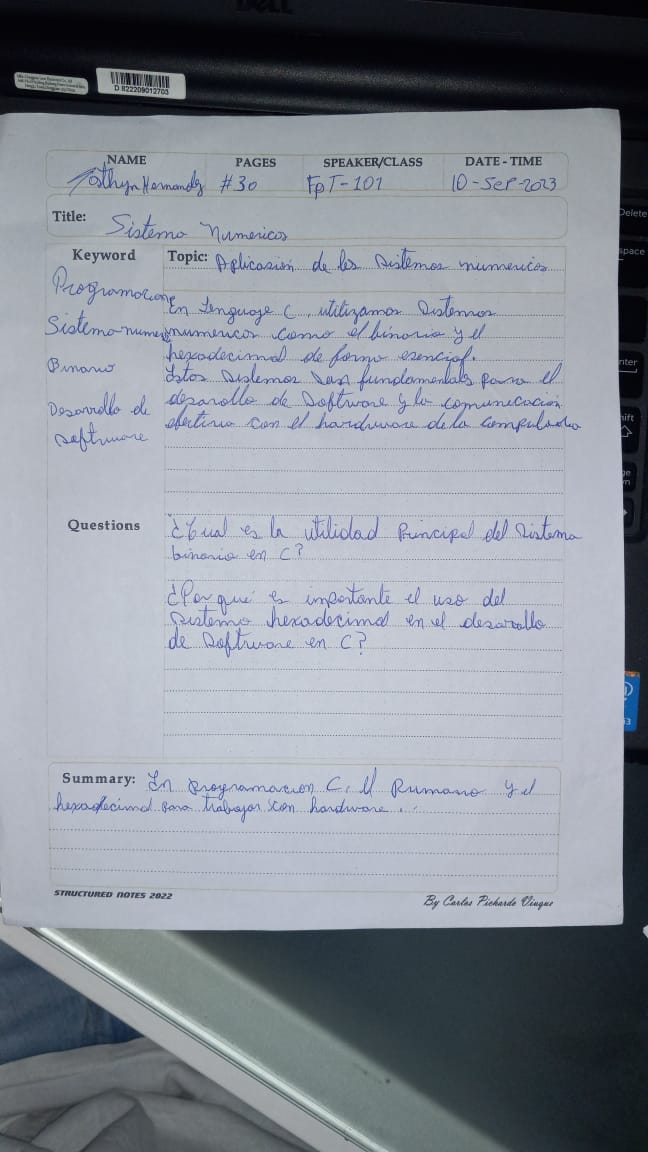 DELL
D 822209012703
NAME PAGES SPEAKER/CLASS DATE - TIME
Hernandez #30 FpT-101 10-Sep-2023
Title: Sistema Numericos
Keyword
Programacion
Sistema numer
Binario
Desarrollo de
software
Topic: Aplicasión de los sistemas numericos
En Lenguaje C, utitizamos Sistemas
numericos como el binario y el
hexadecimal de forma esencial.
Estos sistemas son fundamentals para el
desarollo de Software y la comunicación
efectiva con el hardware de la computadora
Questions
¿Cual es la utilidad Principal del Sistema
binario en C?
¿Por qué es importante el uso del
sistema hexadecimal en el desarollo
de Software en C?
Summary: En programacion C, el Rumano y el
hexadecimal para trabajar con hardware...
STRUCTURED NOTES 2022
By Carlos Pichardo Viuque
Delete
space
nter
hift